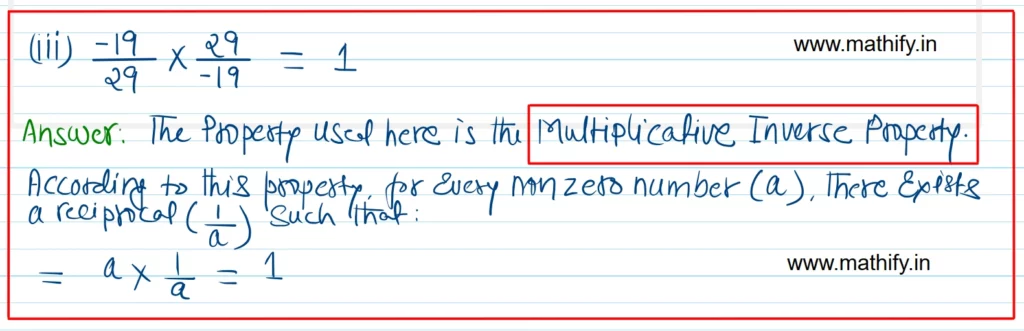 (iii) -19/29 × 29/-19 = 1
www.mathify.in
Answer: The Property used here is the Multiplicative Inverse Property.
According to this property, for Every non zero number (a), There Exists
a reciprocal (1/a) Such that:
= a × 1/a = 1
www.mathify.in